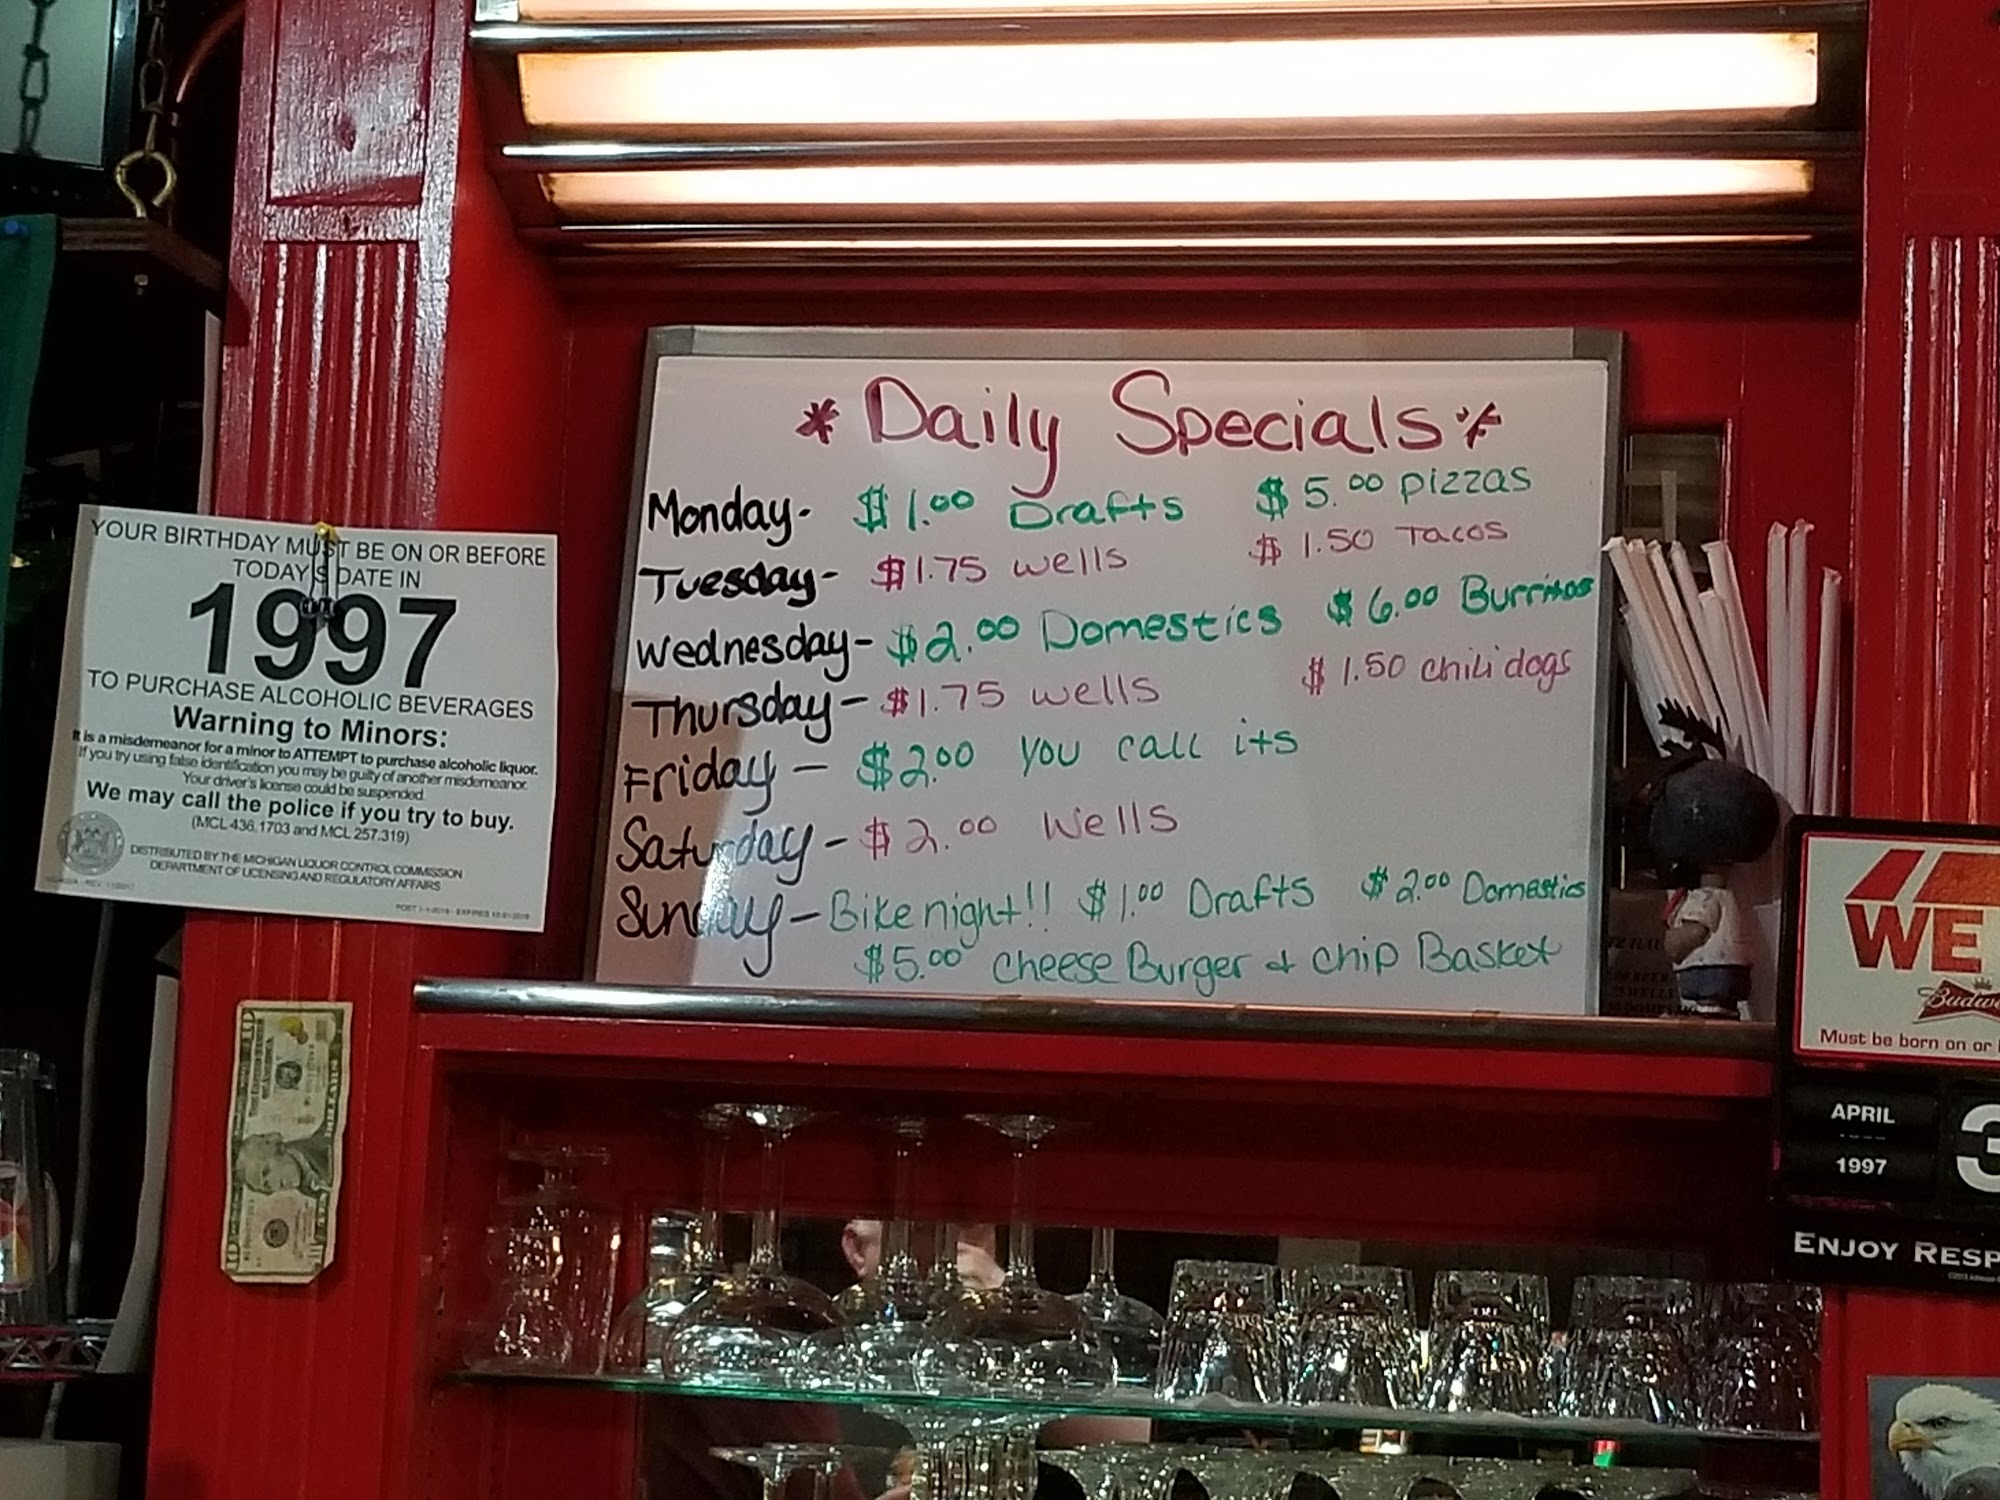 YOUR BIRTHDAY MUST BE ON OR BEFORE
TODAY'S DATE IN
1997
TO PURCHASE ALCOHOLIC BEVERAGES
Warning to Minors:
It is a misdemeanor for a minor to ATTEMPT to purchase alcoholic liquor.
If you try using false identification you may be guilty of another misdemeanor.
Your driver's license could be suspended.
We may call the police if you try to buy.
(MCL 436.1703 and MCL 257.319)
DISTRIBUTED BY THE MICHIGAN LIQUOR CONTROL COMMISSION
DEPARTMENT OF LICENSING AND REGULATORY AFFAIRS
* Daily Specials *
Monday- $1.00 Drafts $5.00 pizzas
Tuesday- $1.75 wells $1.50 Tacos
Wednesday- $2.00 Domestics $6.00 Burritos
Thursday- $1.75 wells $1.50 chili dogs
Friday- $2.00 you call its
Saturday- $2.00 Wells
Sunday- Bike night!! $1.00 Drafts $2.00 Domestics
$5.00 cheese Burger + chip Basket
WE
Budwe
Must be born on or
APRIL
1997
3
ENJOY RESP